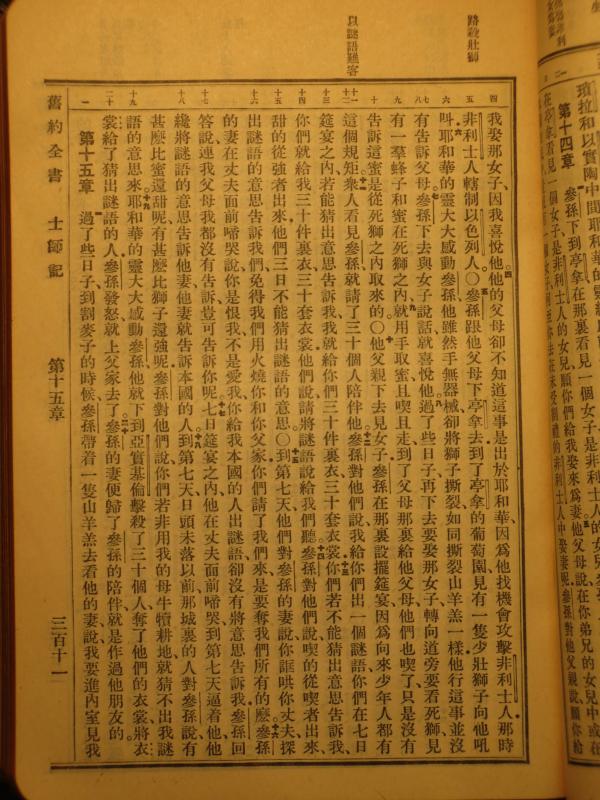 路殺壯獅
以謎語難客
我娶那女子因我喜悅他他的父母卻不知道這事是出於耶和華因爲他找機會攻擊非利士人那時
非利士人轄制以色列人〇參孫跟他父母下亭拿去到了亭拿的葡萄園見有一隻少壯獅子向他吼
叫耶和華的靈大大感動參孫他雖然手無器械卻將獅子撕裂如同撕裂山羊羔一樣他行這事並沒
有告訴父母參孫下去與女子說話就喜悅他過了些日子再下去要娶那女子轉向道旁要看死獅見
有一羣蜂子和蜜在死獅之內就用手取蜜且喫且走到了父母那裏給他父母他們也喫了只是沒有
告訴這蜜是從死獅之內取來的〇他父親下去見女子參孫在那裏設擺筵宴因爲向來少年人都有
這個規矩衆人看見參孫就請了三十個人陪伴他參孫對他們說我給你們出一個謎語你們在七日
筵宴之內若能猜出意思告訴我我就給你們三十件裏衣三十套衣裳你們若不能猜出意思告訴我
你們就給我三十件裏衣三十套衣裳他們說請將謎語說給我們聽參孫對他們說喫的從喫者出來
甜的從強者出來他們三日不能猜出謎語的意思〇到第七天他們對參孫的妻說你誆哄你丈夫探
出謎語的意思告訴我們免得我們用火燒你和你父家你們請了我們來是要奪我們所有的麼參孫
的妻在丈夫面前啼哭說你是恨我不是愛我你給我本國的人出謎語卻沒有將意思告訴我參孫回
答說連我父母我都沒有告訴豈可告訴你呢七日筵宴之內他在丈夫面前啼哭到第七天逼着他他
纔將謎語的意思告訴他妻他妻就告訴本國的人到第七天日頭未落以前那城裏的人對參孫說有
甚麽比蜜還甜呢有甚麽比獅子還強呢參孫對他們說你們若非用我的母牛犢耕地就猜不出我謎
語的意思來耶和華的靈大大感動參孫他就下到亞實基倫擊殺了三十個人奪了他們的衣裳將衣
裳給了猜出謎語的人參孫發怒就上父家去了參孫的妻便歸了參孫的陪伴就是作過他朋友的
第十五章 過了些日子到割麥子的時候參孫帶着一隻山羊羔去看他的妻說我要進內室見我
舊約全書 士師記 第十五章 三百十一